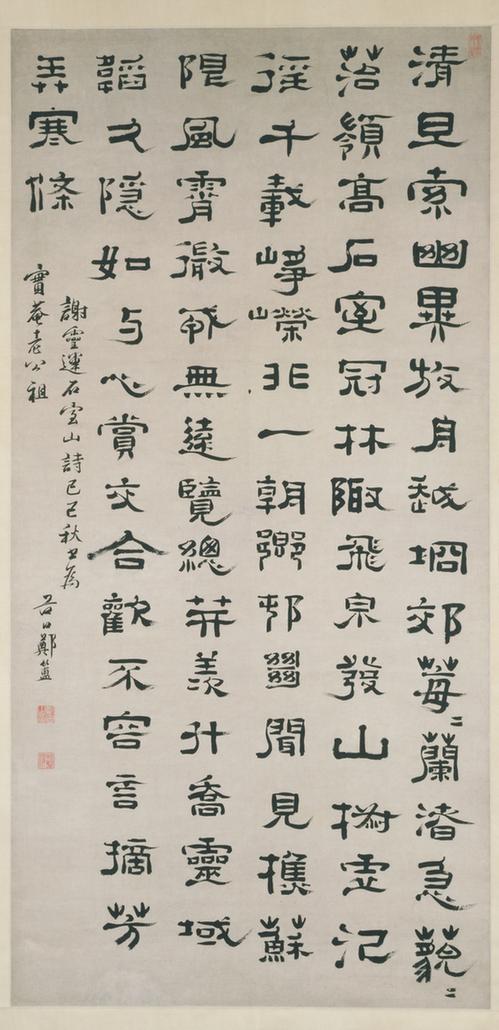 清旦索幽異放舟越坰郊莓〻蘭渚急藐〻
苔嶺高石室冠林陬飛泉發山椒虛泛
徑千載崢嶸非一朝鄉邨㡭聞見樵蘇
限風霄微戎無遠覽總笄羨升喬靈域
韜久隱如与心賞交合歡不容言摘芳
弄寒條
謝靈運石室山詩己巳秋書為
寶菴老公祖
谷口鄭簠